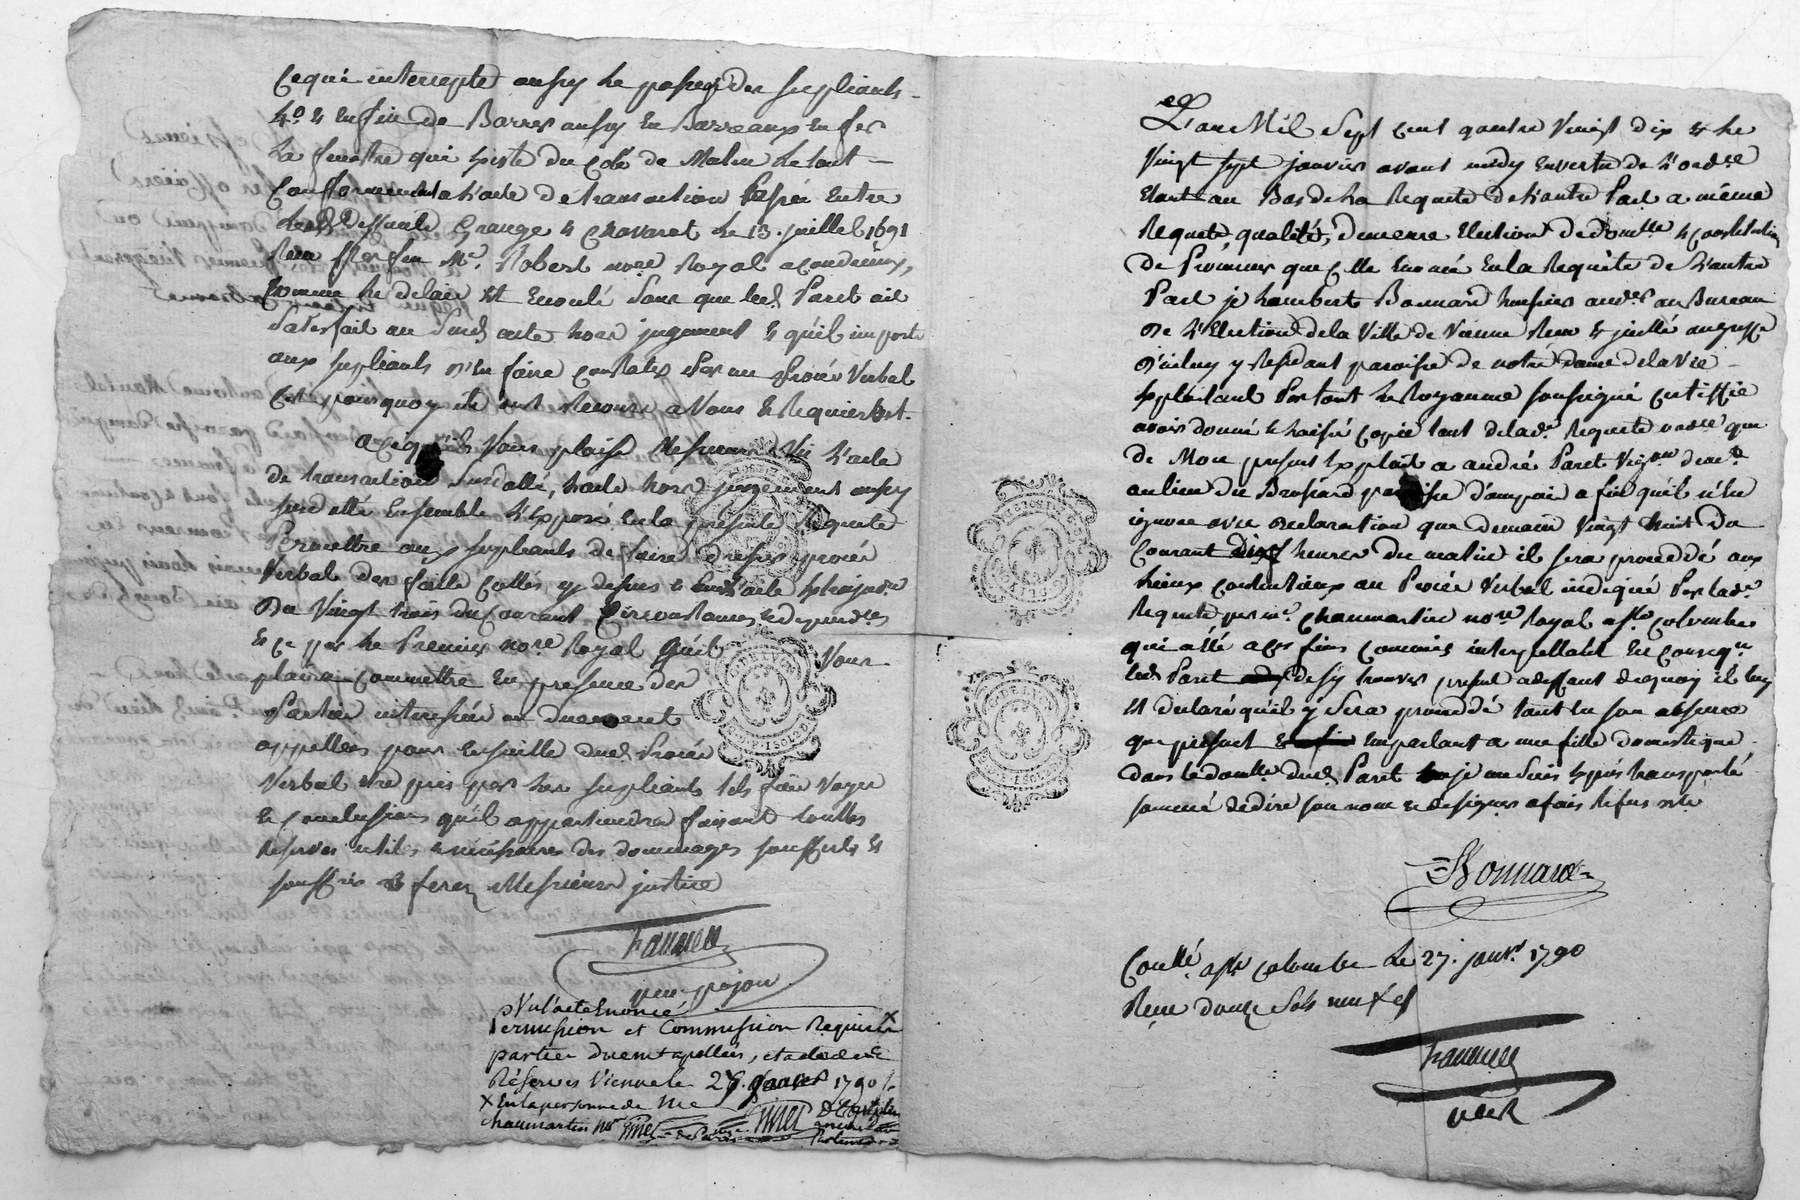 Ce qui intercepte aussy le passage des supliants
4.º & Enfin de Barrer aussy En Barreaux En fer
La fenetre qui Existe du Coté de Matin Le tout
Conformement a L'acte de transaction passé Entre
Grange & Chavaret Le 13. juillet 1691
Reçu par feu Mᵉ. Robert noʳᵉ Royal a Condrieux,
Comme Le delai Est Ecoulé Sans que Led Paret ait
Satisfait au Sud acte hors jugement & qu'il importe
aux supliants d'En faire Constater Par un Procès Verbal
C'est pourquoy ils ont Recours a Vous & Requierent
a Ce qu'il Vous plaise Messieurs Vu L'acte
de transaction Susdatté, L'acte hors jugement aussy
susdatté Ensemble L'Exposé En la presente Requete
Permettre aux supliants de faire dresser procès
Verbal des faitte Cottés cy dessus & En L'acte
Du Vingt trois du Courant Circonstances & dependᶜᵉˢ
Et Ce par Le Premier noʳᵉ Royal Qu'il Vous
plaira Commettre En presence des
Parties interessées ou Duement
appellées pour Ensuitte dud Procès
Verbal Etre pris par Les supliants tels
Et Conclusions qu'il appartiendra faisant touttes
Reserves utiles & necessaires des dommages soufferts &
souffrir & ferez Messieurs justice
Vu l'acte Enoncé
Permission et Commission Requise X
parties Duement apellées, et a
Réserves Vienne le 27. Janvier 1790
X En la personne de Me
Chaumartin Nʳᵉ
L'an Mil Sept Cent quatre Vingt dix & Le
Vingt sept janvier avant midy En vertu de L'ordᶜᵉ
Etant au Bas de La Requete de L'autre Part a même
Requete, qualités, demeure Election de domˡˡᵉ & Constitution
De Procureur que Celle Enoncée En la Requête de L'autre
Part je Lambert Bonnard huissier audʳ au Bureau
De L'Election de la Ville de Vienne Reçu & jmmatriculé au greffe
D'icelluy y Residant paroisse de notre dame de la Vie
Exploitant Partout Le Royaume soussigné Certiffie
avoir donné & Laissé Copie tant de lad. Requete ordᶜᵉ que
De Mon present Exploit a andré Paret Vigneron demᵗ
au lieu du Brossard paroisse d'ampuis a fin qu'il n'En
ignore avec Declaration que demain Vingt huit du
Courant Dix heures Du matin il sera procedé aux
Lieux Contentieux au Procès Verbal indiqué Par lad.
Requete par mᵉ. Chaumartin noʳᵉ Royal a Sᵗᵉ Colombe
qui a Eté a Ces fins Commis interpellant En Conseqᶜᵉ
Led Paret de s'y trouver present a deffaut de quoy il luy
Est Declaré qu'il y Sera procedé tant En son absence
que present En parlant a une fille domestique
dans le domˡˡᵉ dud Paret ou je me suis Exprès transporté
sommé de dire son nom & de signer a fait Refus
Bonnard
Collé a Sᵗᵉ Colombe Le 27. janvʳ. 1790
Reçu Douze Sols